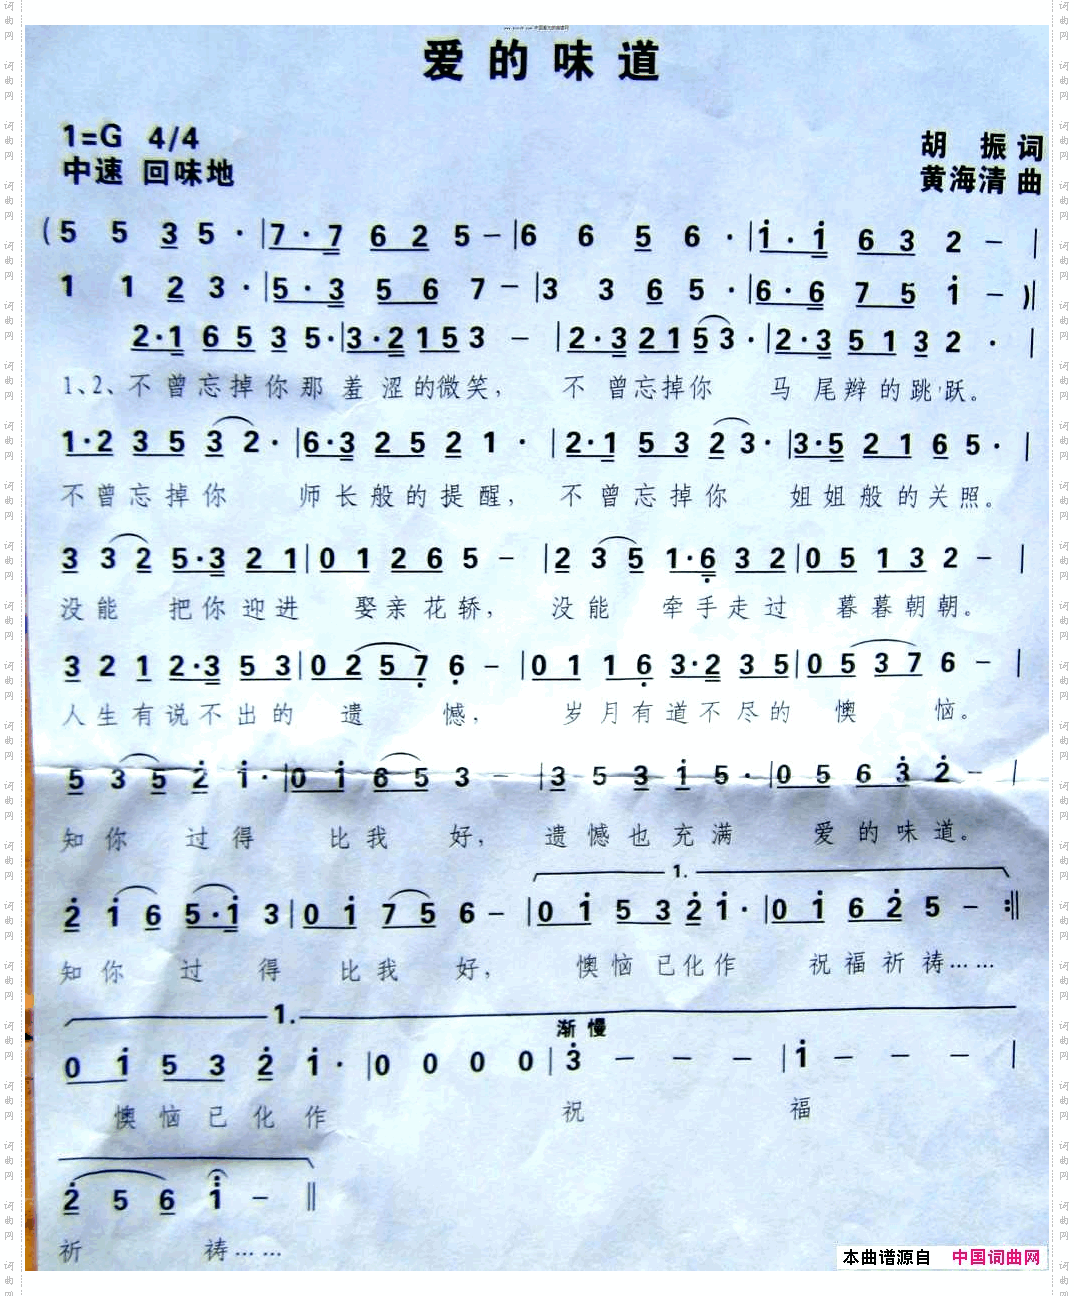 爱的味道
1=G 4/4
胡 振 词
中速 回味地
黄海清 曲
(5 5 3 5 · |7 · 7 6 2 5 – |6 6 5 6 · |1 · 1 6 3 2 – |
1 1 2 3 · |5 · 3 5 6 7 – |3 3 6 5 · |6 · 6 7 5 1 – )|
2·1 6 5 3 5·|3·2 1 5 3 – |2·3 2 1 5 3 · |2·3 5 1 3 2 · |
1、2、不曾忘掉你那羞涩的微笑， 不曾忘掉你 马尾辫的跳跃。
1·2 3 5 3 2· |6·3 2 5 2 1 · |2·1 5 3 2 3· |3·5 2 1 6 5· |
不曾忘掉你 师长般的提醒， 不曾忘掉你 姐姐般的关照。
3 3 2 5·3 2 1|0 1 2 6 5 – |2 3 5 1·6 3 2|0 5 1 3 2 – |
没能 把你迎进 娶亲花轿， 没能 牵手走过 暮暮朝朝。
3 2 1 2·3 5 3|0 2 5 7 6 – |0 1 1 6 3·2 3 5|0 5 3 7 6 – |
人生有说不出的 遗 憾， 岁月有道不尽的 懊 恼。
5 3 5 2 1 ·|0 1 6 5 3 – |3 5 3 1 5 ·|0 5 6 3 2 – |
知你 过得 比我 好， 遗憾也充满 爱的味道。
1.
2 1 6 5·1 3|0 1 7 5 6 – |0 1 5 3 2 1·|0 1 6 2 5 – :‖
知你 过 得 比我 好， 懊恼已化作 祝福祈祷……
1.
渐慢
0 1 5 3 2 1· |0 0 0 0|3 – – – |1 – – – |
懊恼已化作 祝 福
2 5 6 1 – ‖
祈 祷……
本曲谱源自 中国词曲网